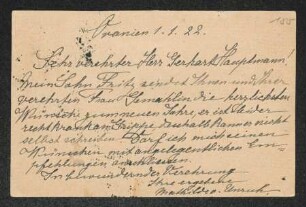 155
Oranien 1.1.22.
Sehr verehrter Herr Gerhart Hauptmann!
Mein Sohn Fritz sendet Ihnen und Ihrer
verehrten Frau Gemahlin die herzlichsten
Wünsche zum neuen Jahre, er ist leider
recht krank an Grippe deshalb kann er nicht
selbst schreiben. Darf ich mich seinen
Wünschen mit angelegentlichen Em-
pfehlungen anschliessen.
In bewundernder Verehrung
Ihre ergebene
Mathilde Unruh